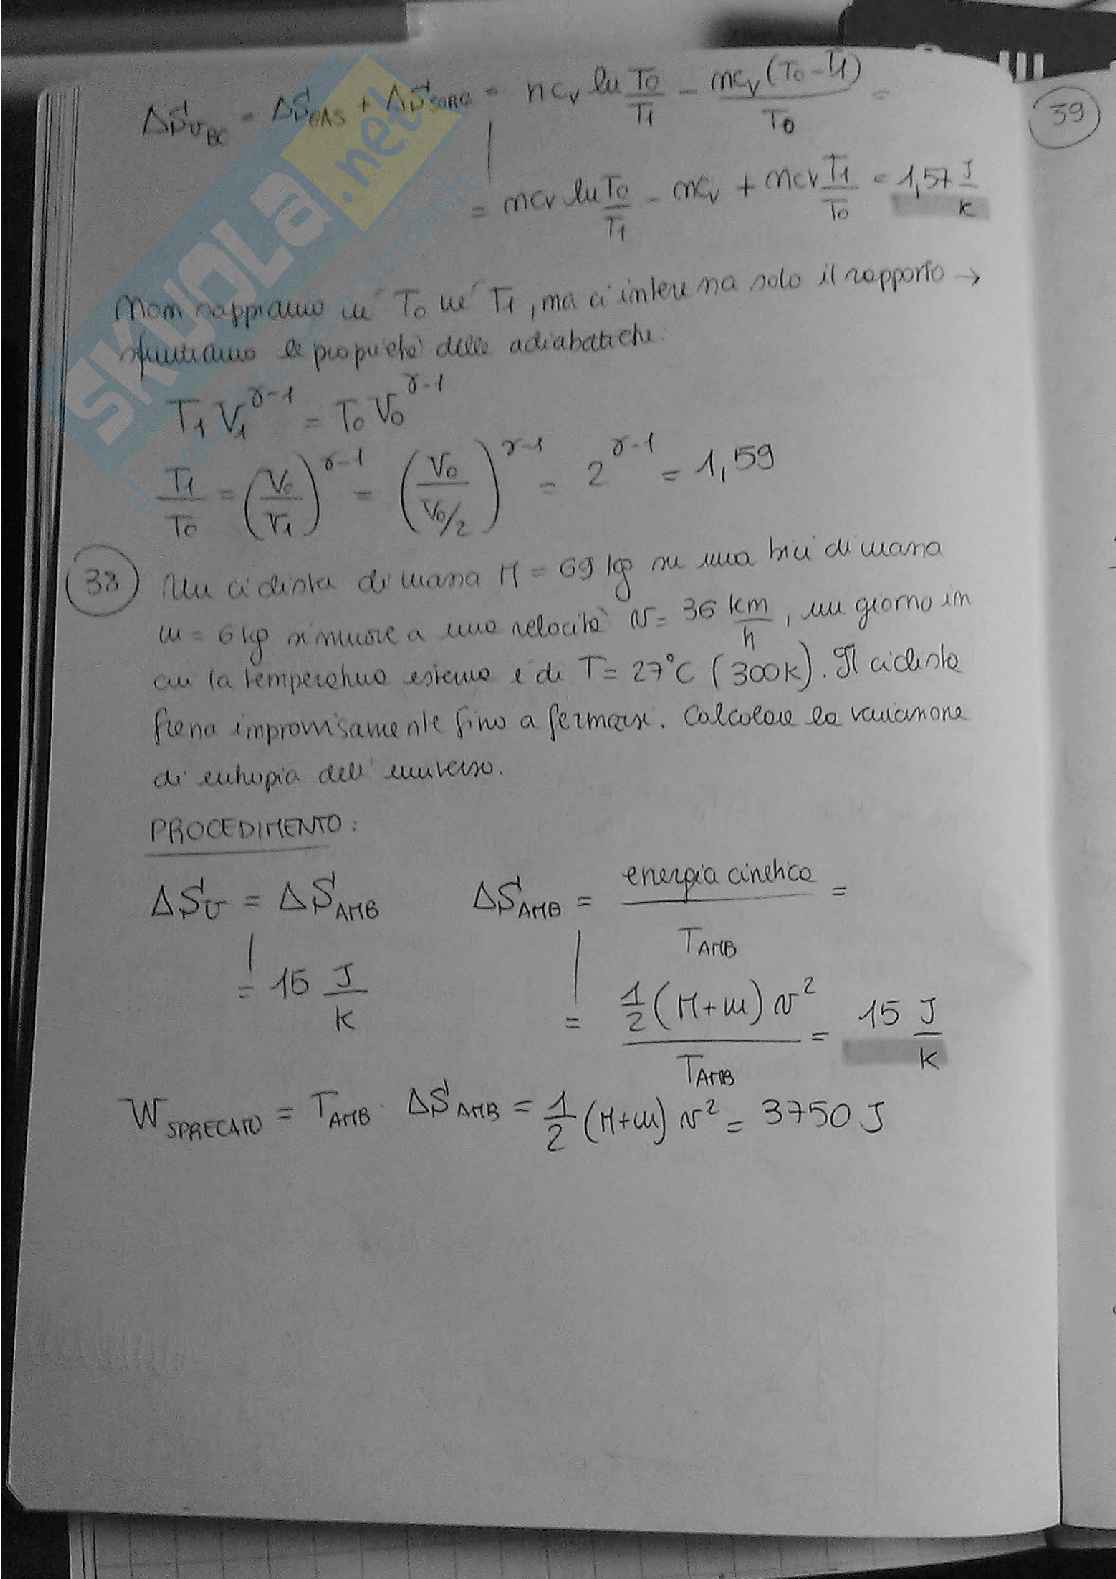 ΔS_U_BC = ΔS_GAS + ΔS_SORG = nc_v ln T0/T1 - nc_v (T0 - T1)/T0 =
= nc_v ln T0/T1 - nc_v + nc_v T1/T0 = 1,57 J/K
39
SKUOLA.net
Non sappiamo né T0 né T1, ma ci interessa solo il rapporto →
sfruttiamo le proprietà delle adiabatiche.
T1 V1^γ-1 = T0 V0^γ-1
T1/T0 = (V0/V1)^γ-1 = (V0/V0/2)^γ-1 = 2^γ-1 = 1,59
38 Un ciclista di massa M = 69 kg su una bici di massa
m = 6 kg si muove a una velocità v = 36 km/h, un giorno in
cui la temperatura esterna è di T = 27°C (300K). Il ciclista
frena improvvisamente fino a fermarsi. Calcolare la variazione
di entropia dell'universo.
PROCEDIMENTO:
ΔS_U = ΔS_AMB ΔS_AMB = energia cinetica/T_AMB =
= 15 J/K = 1/2 (M+m) v²/T_AMB = 15 J/K
W_SPRECATO = T_AMB · ΔS_AMB = 1/2 (M+m) v² = 3750 J